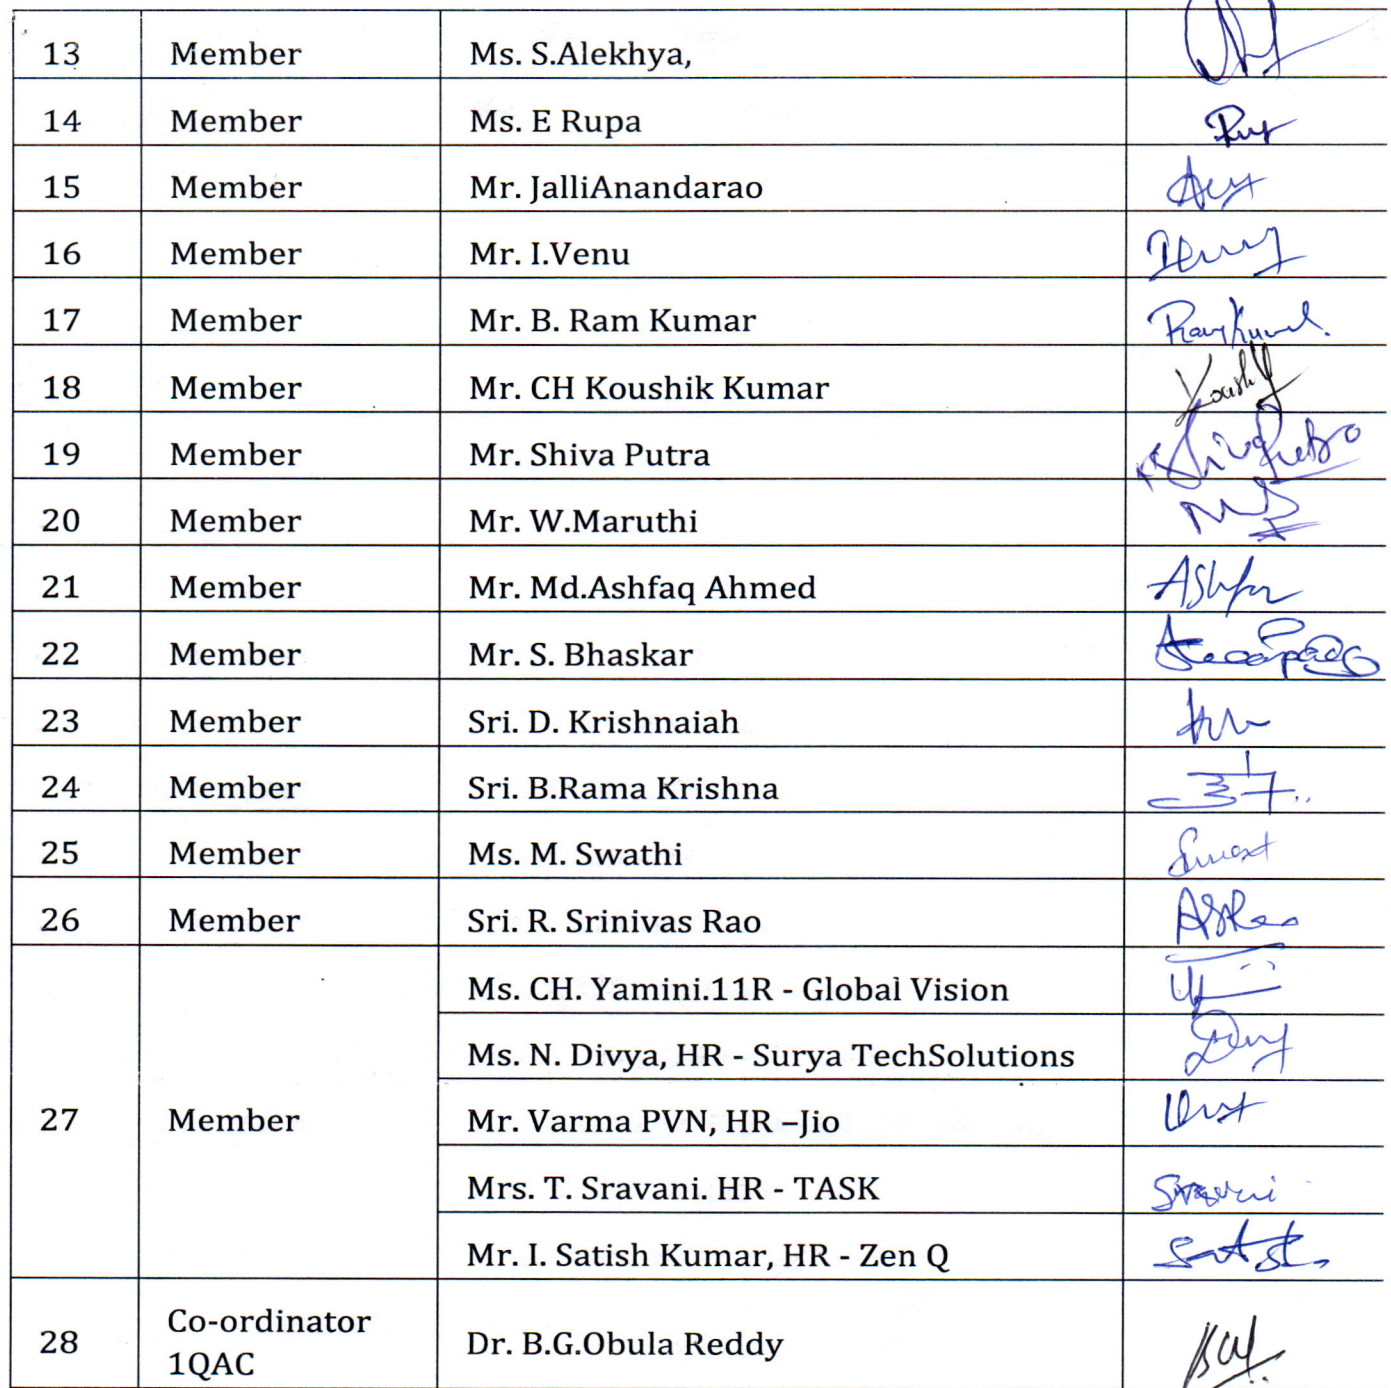 13 Member Ms. S.Alekhya,
14 Member Ms. E Rupa
15 Member Mr. JalliAnandarao
16 Member Mr. I.Venu
17 Member Mr. B. Ram Kumar
18 Member Mr. CH Koushik Kumar
19 Member Mr. Shiva Putra
20 Member Mr. W.Maruthi
21 Member Mr. Md.Ashfaq Ahmed
22 Member Mr. S. Bhaskar
23 Member Sri. D. Krishnaiah
24 Member Sri. B.Rama Krishna
25 Member Ms. M. Swathi
26 Member Sri. R. Srinivas Rao
27 Member
Ms. CH. Yamini.11R - Global Vision
Ms. N. Divya, HR - Surya TechSolutions
Mr. Varma PVN, HR –Jio
Mrs. T. Sravani. HR - TASK
Mr. I. Satish Kumar, HR - Zen Q
28 Co-ordinator
1QAC
Dr. B.G.Obula Reddy